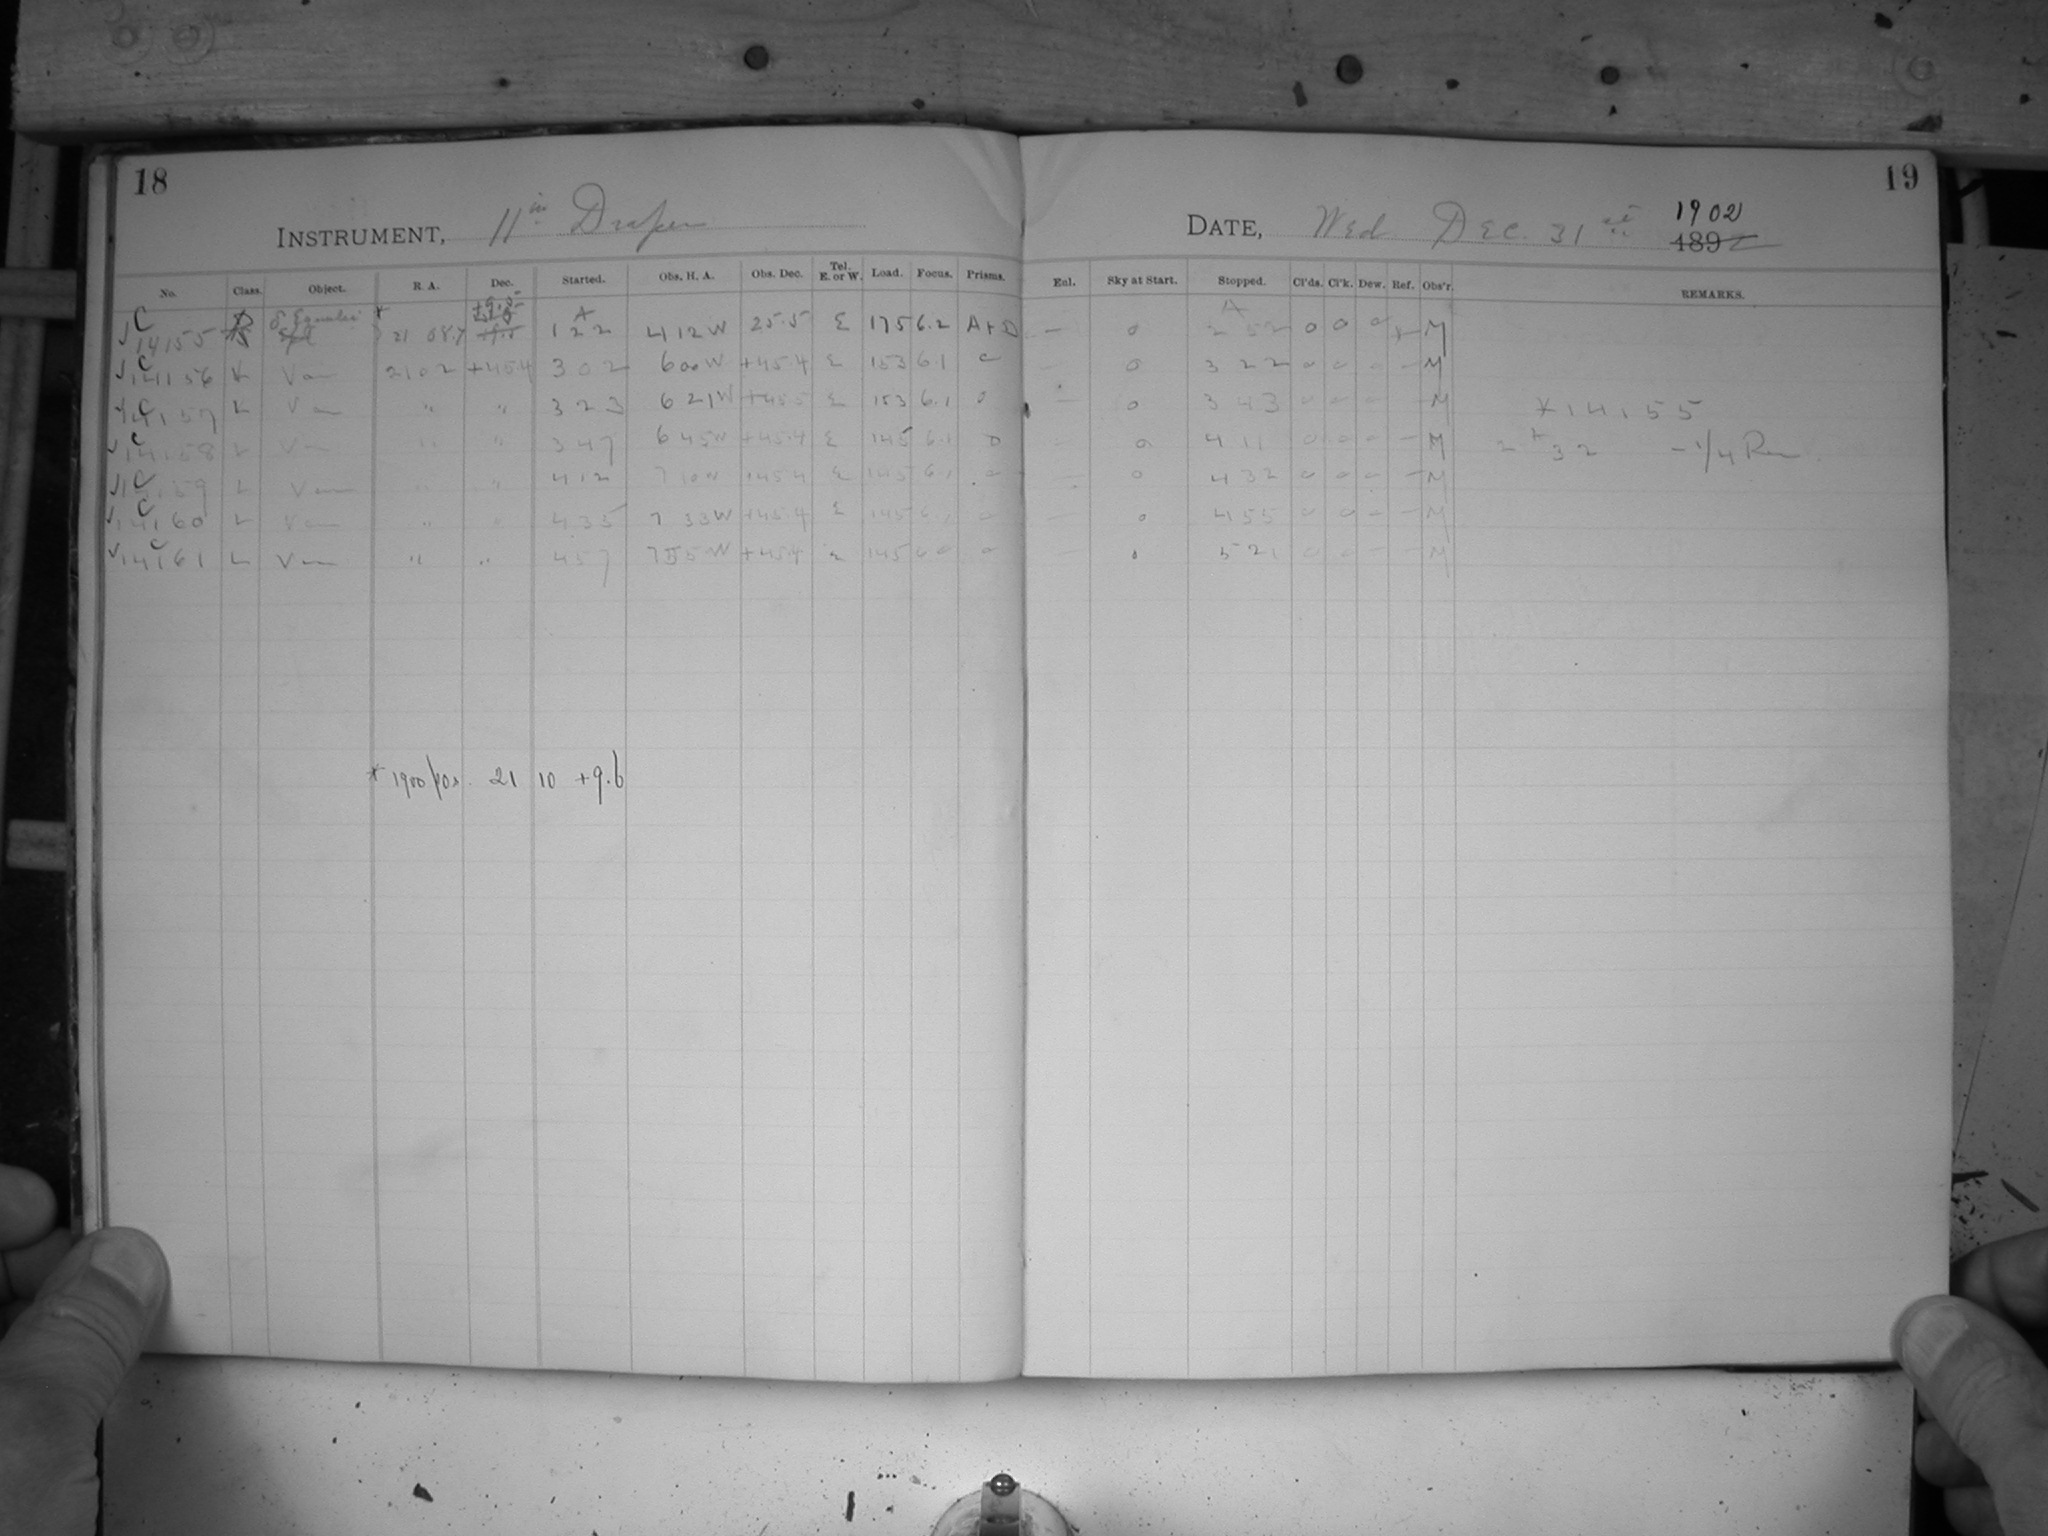 18
INSTRUMENT, 11 in Draper
No. Class. Object. R. A. Dec. Started. Obs. H. A. Obs. Dec. Tel. E. or W. Load. Focus. Prisms.
C 14155 * 21 08.7 A 1 22 4 12 W 25.5 E 175 6.2 A+D
C 14156 L Var 21 02 +45.4 3 02 6 00 W +45.4 E 153 6.1 0
C 14157 L Var " " 3 23 6 21 W +45.5 E 153 6.1 0
C 14158 L Var " " 3 47 6 45 W +45.4 E 145 6.1 0
C 14159 L Var " " 4 12 7 10 W +45.4 E 145 6.1 0
C 14160 L Var " " 4 35 7 33 W +45.4 E 145 6.1 0
C 14161 L Var " " 4 57 7 55 W +45.4 E 145 6.0 0
* 1900 pos. 21 10 +9.6
19
DATE, Wed Dec. 31 st 1902
189
Enl. Sky at Start. Stopped. Cl'ds. Cl'k. Dew. Ref. Obs'r. REMARKS.
— 0 A 2 52 0 0 0 * M
— 0 3 22 0 0 – – M
— 0 3 43 0 0 – – M * 14155
— 0 4 11 0 0 – – M 2 * 32 – 1/4 Rev
— 0 4 32 0 0 – – M
— 0 4 55 0 0 – – M
— 0 5 21 0 0 – – M